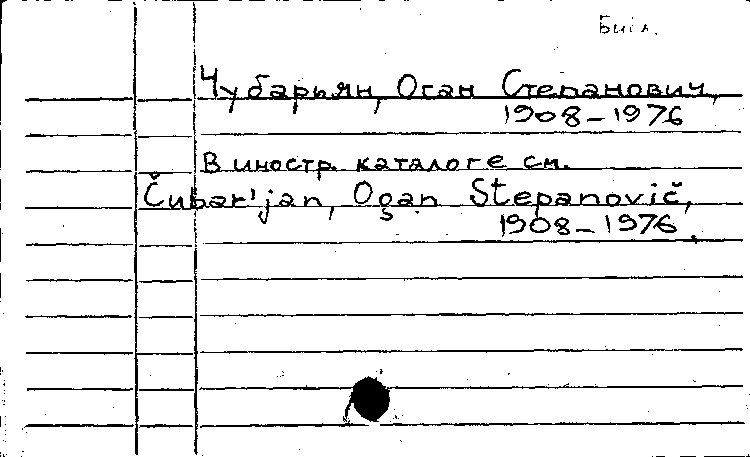 Чубарьян, Оган Степанович,
1908–1976
В иностр. каталоге см.
Čubar'jan, Ogan Stepanovič,
1908–1976.